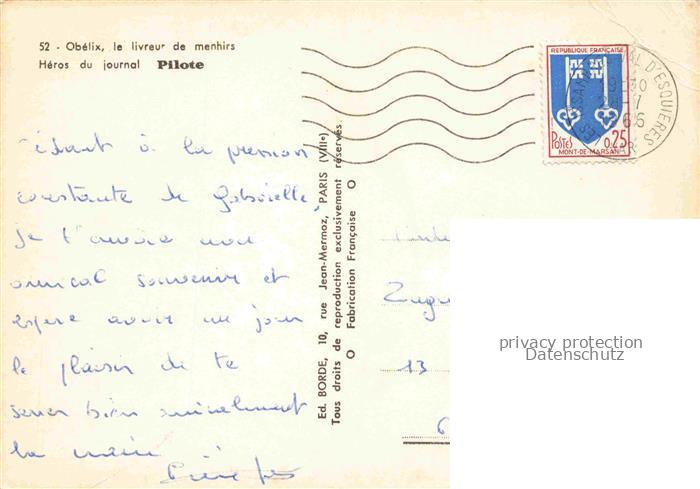 52 - Obélix, le livreur de menhirs
Héros du journal Pilote
REPUBLIQUE FRANÇAISE
POSTES 0,25
MONT-DE-MARSAN
VAL D'ESQUIERES
Cédant à la pression
constante de Gabrielle,
je t'envoie mon
amical souvenir et
espère avoir un jour
le plaisir de te
serrer bien amicalement
la main
Ed. BORDE, 10, rue Jean-Mermoz, PARIS (VIIIe)
Tous droits de reproduction exclusivement réservés.
Fabrication Française
13
6
privacy protection
Datenschutz